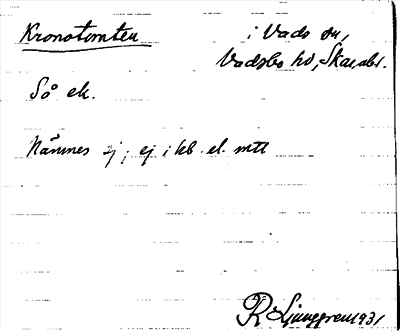 Kronotomten
i Vads sn,
Vadsbo hd, Skar.bl.
Så ek.
Nämnes ej; ej i kb. el. mtl
R Ljunggren 1931